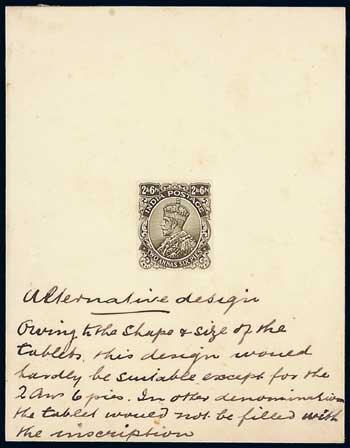 2A6P 2A6P
INDIA POSTAGE
TWO ANNAS SIX PIES
Alternative design
Owing to the shape & size of the
tablets, this design would
hardly be suitable except for the
2 An 6 pies. In other denominations
the tablet would not be filled with
the inscription